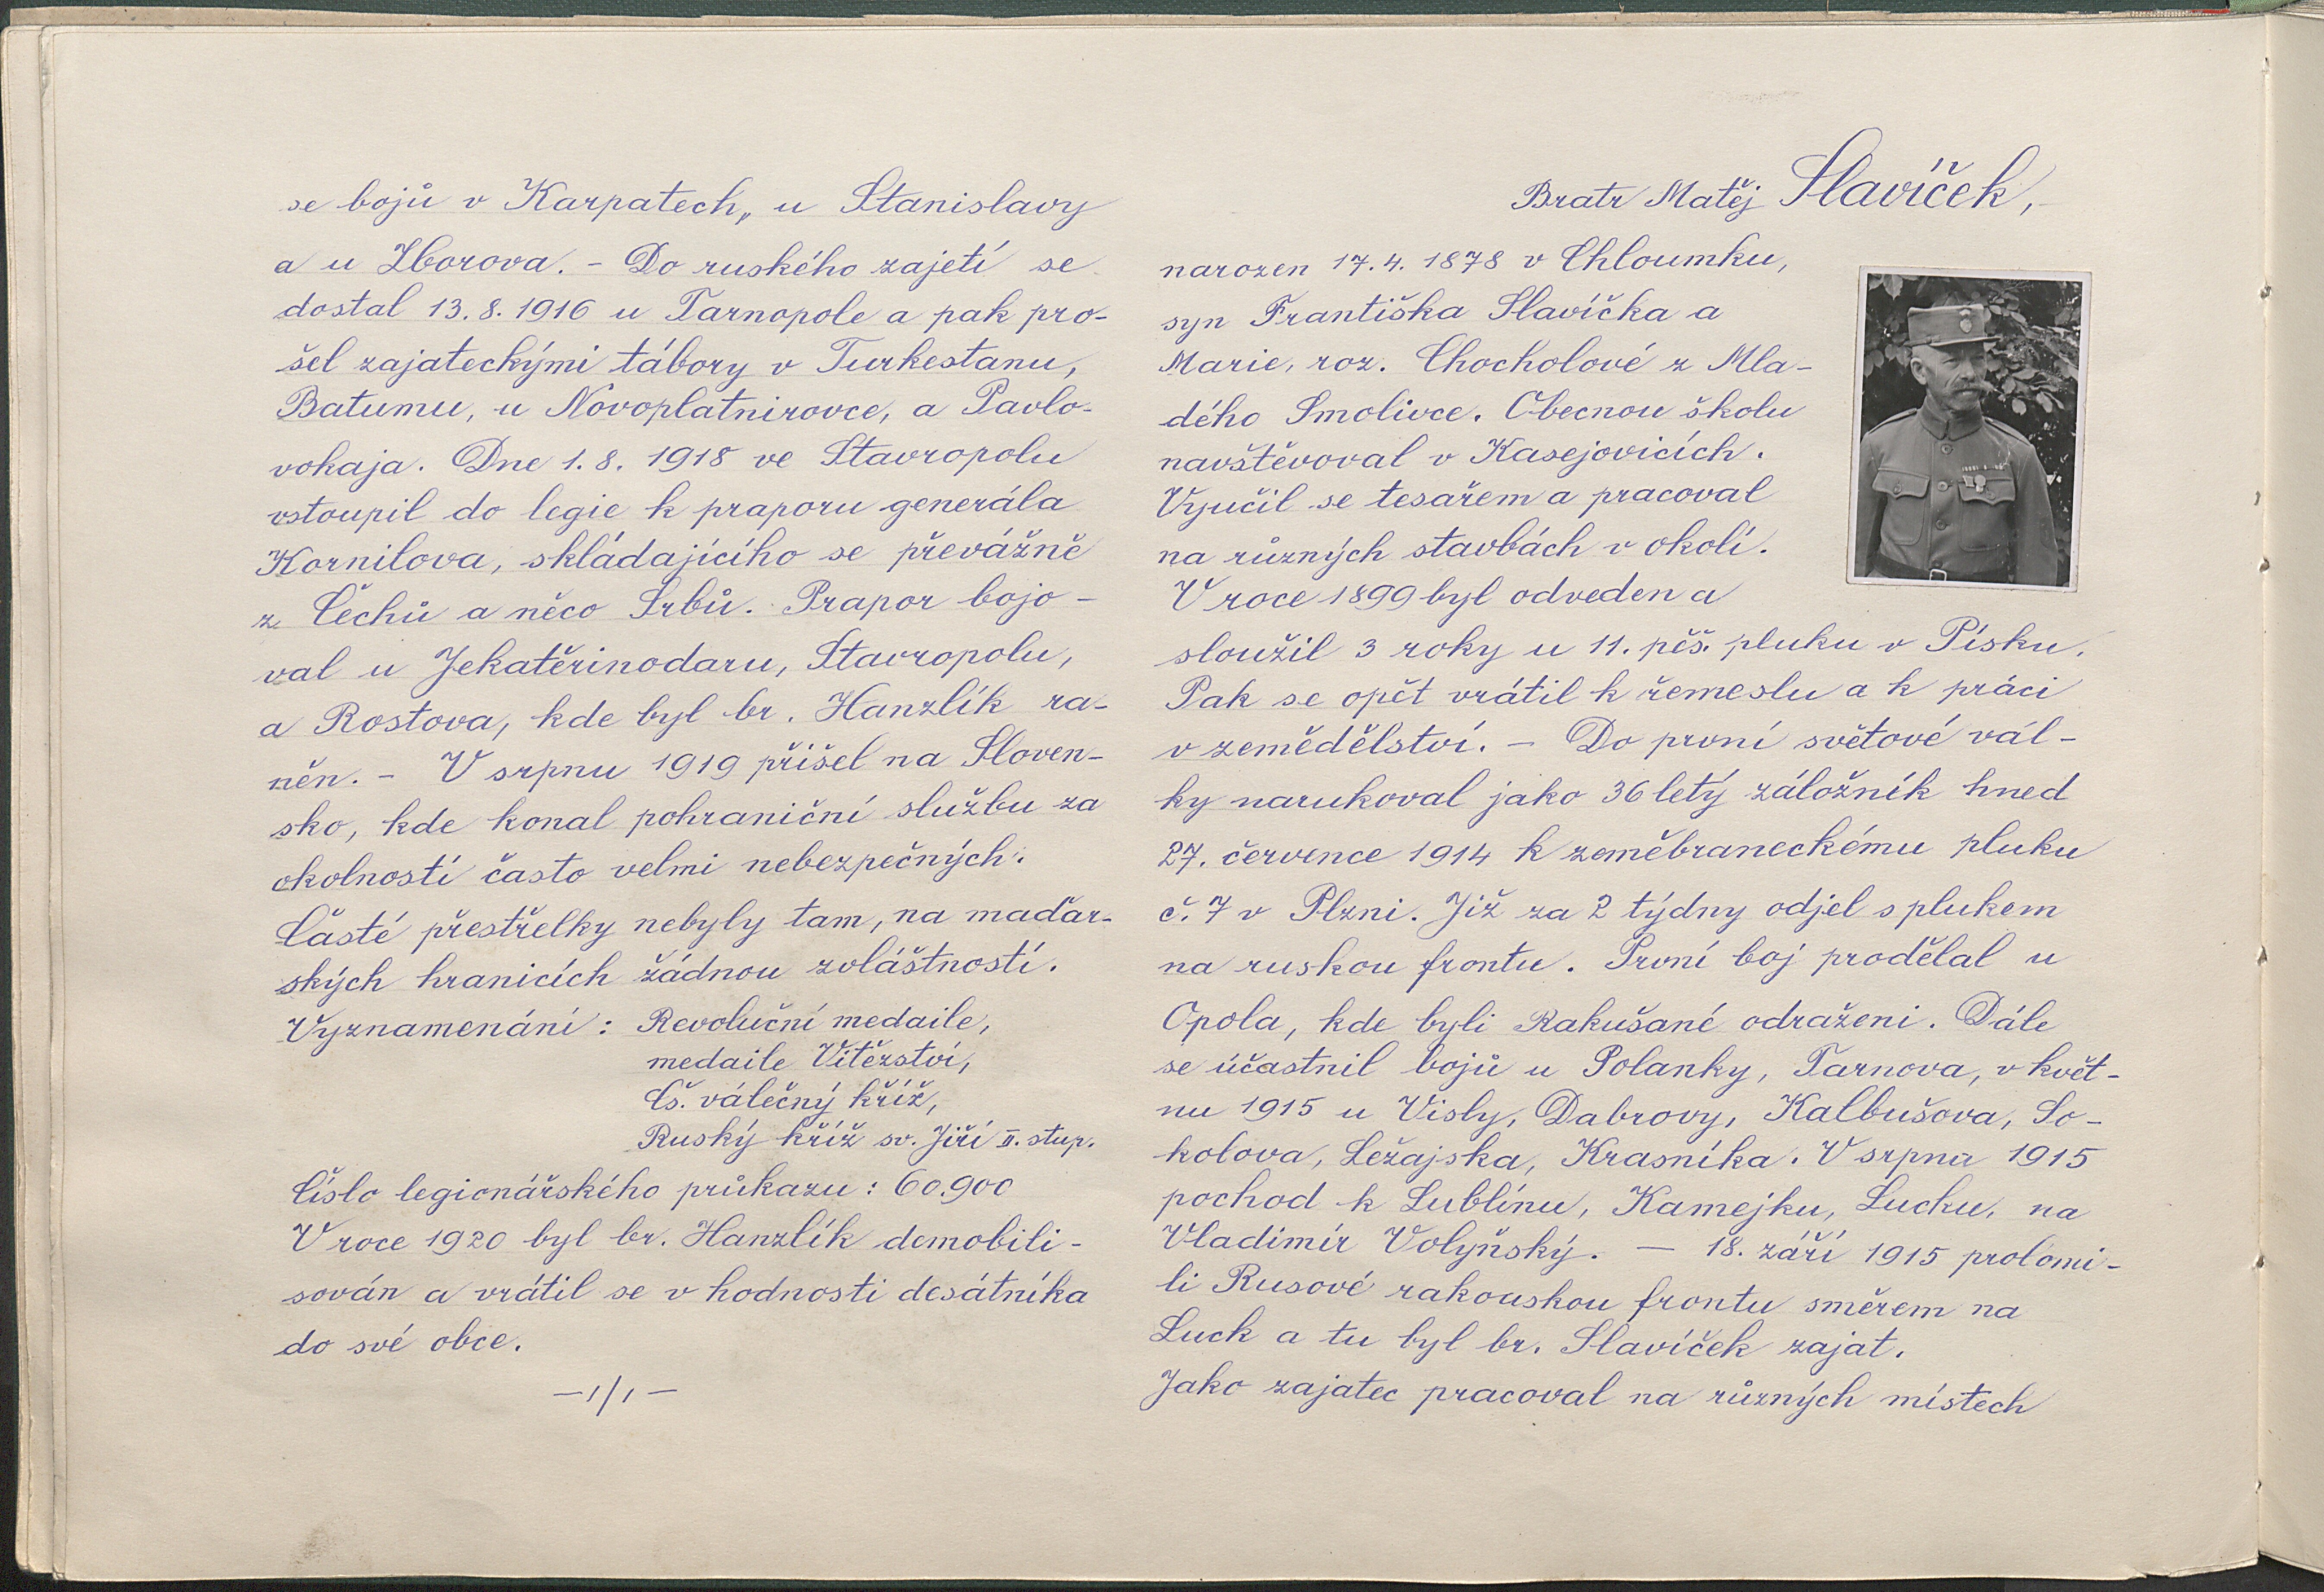 se bojů v Karpatech, u Stanislavy
a u Zborova. - Do ruského zajetí se
dostal 13. 8. 1916 u Tarnopole a pak pro-
šel zajateckými tábory v Turkestanu,
Batumu, u Novoplatnirovce, a Pavlo-
vokaja. Dne 1. 8. 1918 ve Stavropolu
vstoupil do legie k praporu generála
Kornilova, skládajícího se převážně
z Čechů a něco Srbů. Prapor bojo-
val u Jekatěrinodaru, Stavropolu,
a Rostova, kde byl br. Hanzlík ra-
něn. - V srpnu 1919 přišel na Sloven-
sko, kde konal pohraniční službu za
okolností často velmi nebezpečných.
Časté přestřelky nebyly tam, na maďar-
ských hranicích žádnou zvláštností.
Vyznamenání: Revoluční medaile,
medaile Vítězství,
Čs. válečný kříž,
Ruský kříž sv. Jiří II. stup.
Číslo legionářského průkazu: 60.900
V roce 1920 byl br. Hanzlík demobili-
sován a vrátil se v hodnosti desátníka
do své obce.
—1/1—
Bratr Matěj Slavíček,
narozen 17. 4. 1878 v Chloumku,
syn Františka Slavíčka a
Marie, roz. Chocholové z Mla-
dého Smolivce. Obecnou školu
navštěvoval v Kasejovicích.
Vyučil se tesařem a pracoval
na různých stavbách v okolí.
V roce 1899 byl odveden a
sloužil 3 roky u 11. pěš. pluku v Písku.
Pak se opět vrátil k řemeslu a k práci
v zemědělství. - Do první světové vál-
ky narukoval jako 36 letý záložník hned
27. července 1914 k zeměbraneckému pluku
č. 7 v Plzni. Již za 2 týdny odjel s plukem
na ruskou frontu. První boj prodělal u
Opola, kde byli Rakušané odraženi. Dále
se účastnil bojů u Polanky, Tarnova, v květ-
nu 1915 u Visly, Dabrovy, Kalbušova, So-
kolova, Ležajska, Krasníka. V srpnu 1915
pochod k Lublínu, Kamejku, Lucku, na
Vladimír Volyňský. — 18. září 1915 prolomi-
li Rusové rakouskou frontu směrem na
Luck a tu byl br. Slavíček zajat.
Jako zajatec pracoval na různých místech